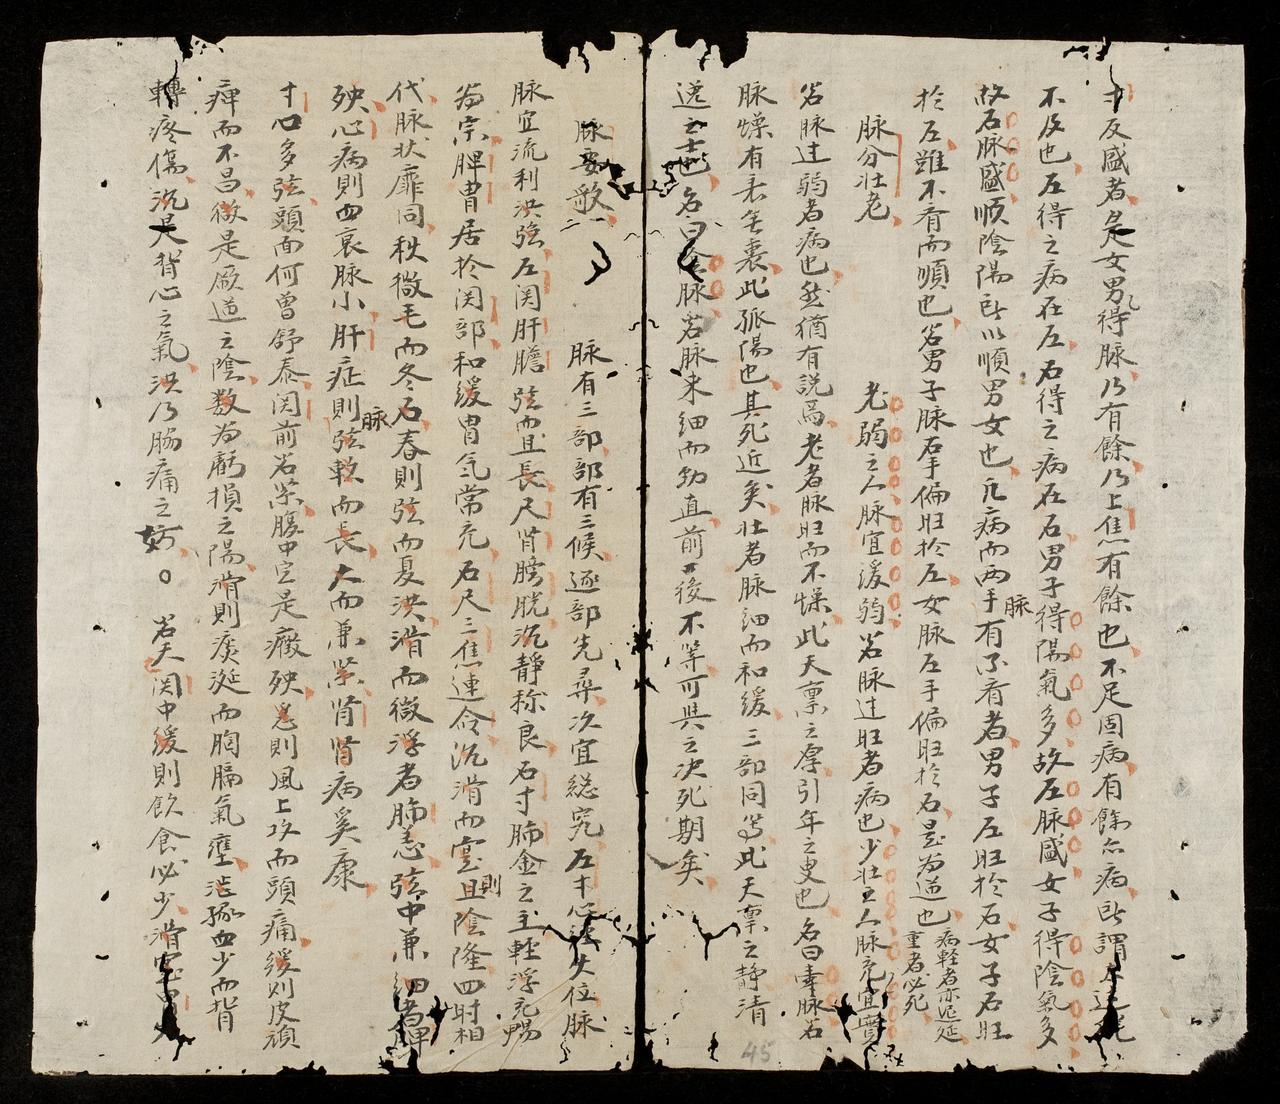 寸反盛者是女男得脉乃有餘乃上焦有餘也不足固病有餘亦病所謂
不及也左得之病在左右得之病在右男子得陽氣多故左脉盛女子得陰氣多
故右脉盛順陰陽所以順男女也凢病而兩手脉有不省者男子左旺扵右女子右旺
扵左雖不看而順也若男子脉右手偏旺扵左女脉左手偏旺扵右是為逆也病軽者亦迟延重者必死
脉分壮老
老弱之人脉宜緩弱若脉过旺者病也少壮之人脉宜充實
若脉过弱者病也然猶有説焉老者脉旺而不燥此天禀之厚引年之叟也名曰壽脉若
脉燥有表無裏此孤陽也其死近矣壮者脉细而和緩三部同等此天禀之静清
逸之士也名曰陰脉若脉来细而劲直前後不等可與之决死期矣
脉要歌
脉有三部部有三候逐部先尋次宜総究左寸心 失位脉
脉宜流利洪強左関肝膽弦而且長尺肾膀胱沉静称良右寸肺金之主輕浮充暢
為宗脾胃居扵関部和緩胃氣常充右尺三焦連命沉滑而實則且陰隆四时相
代脉状靡同秋微毛而冬石春則弦而夏洪滑而微浮者肺恙弦中兼细者脾
殃心病則血衰脉小肝症則弦脉軟而長大而兼緊肾肾病奚康
寸口多弦頭面何曾舒泰関前若緊腹中定是癥殃急則風上攻而頭痛緩則皮頑
痺而不昌微是厥逆之陰数為虧損之陽滑則痰涎而胸膈氣壅澁孤血少而背
轉疼傷沉是背心之氣洪乃腸痛之妨○若夫関中緩則飲食必少滑實胃
45